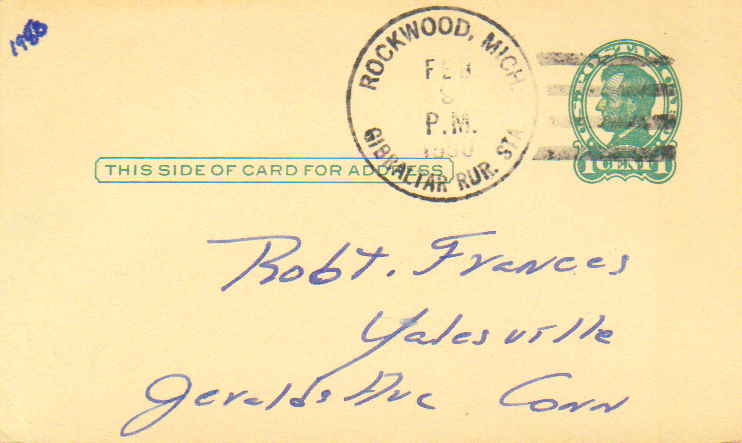 1988
ROCKWOOD, MICH.
FEB
P.M.
GIBRALTAR RUR. STA.
U.S. POSTAL CARD
1 CENT 1
THIS SIDE OF CARD FOR ADDRESS
Robt. Frances
Yalesville
Geralds Ave Conn